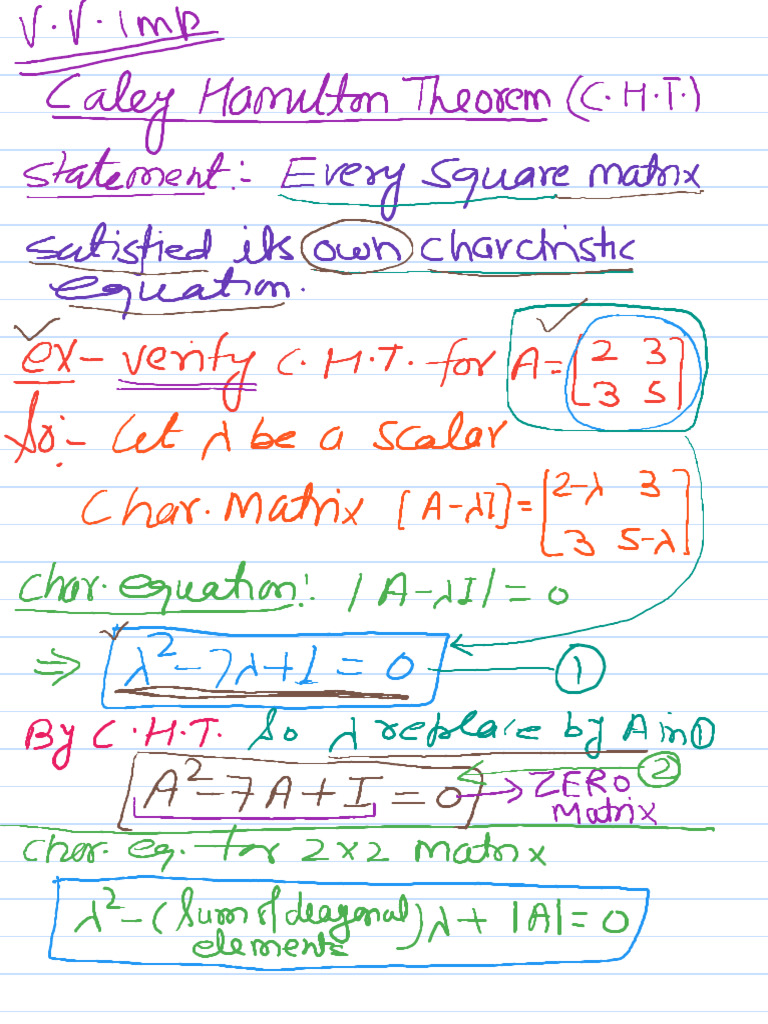 V.V.Imp
Caley Hamilton Theorem (C.H.T.)
Statement:- Every square matrix
satisfied its own charctristic
equation.
ex- verify C.H.T. for A = [2 3
3 5]
So:- Let λ be a scalar
Char. Matrix [A-λI] = [2-λ 3
3 5-λ]
Char. equation:- |A-λI| = 0
⇒ λ²-7λ+1 = 0 — ①
By C.H.T. So λ replace by A in ①
A²-7A+I = 0 → ZERO Matrix ②
Char. eq. for 2x2 Matrix
λ²-(Sum of deagonal elements)λ + |A| = 0